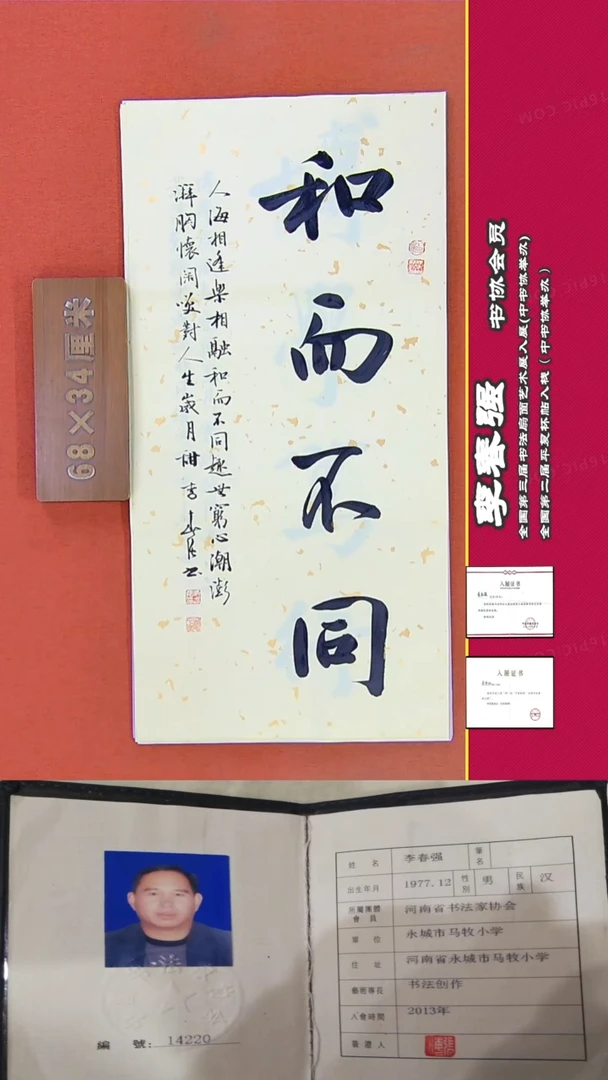 和而不同
人海相逢樂相融和而不同趣世窮心潮澎
湃胸懷闊笑對人生歲月甜李春强书
68×34厘米
李春强 书协会员
全国第三届书法扇面艺术展入展(中书协举办)
全国第二届平复杯帖入展(中书协举办)
入展证书
入展证书
編 號: 14220
姓 名 李春强 筆名
出生年月 1977.12 性別 男 民族 汉
所屬團體會員 河南省书法家协会
單 位 永城市马牧小学
住 址 河南省永城市马牧小学
藝術專長 书法创作
入會時間 2013年
簽證人